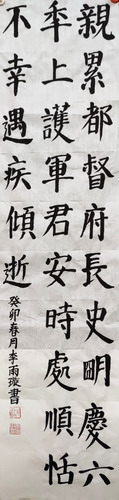 親累都督府長史朙慶六
秊上護軍君安時處順恬
不幸遇疾傾逝
癸卯春月李雨璇書